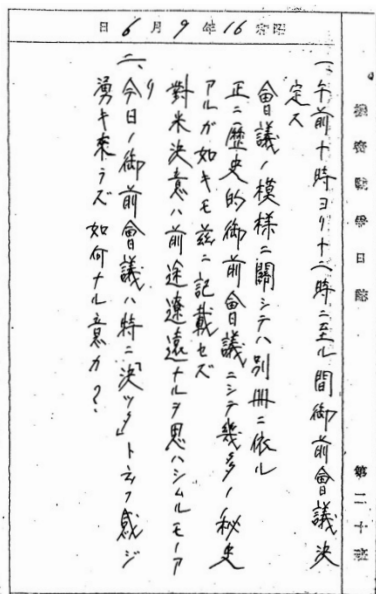 昭和16年9月6日
機密戰爭日誌
第二十班
一、午前十時ヨリ十二時ニ至ル間御前會議決
定ス
會議ノ模様ニ關シテハ別冊ニ依ル
正ニ歴史的御前會議ニシテ幾多ノ秘史
アルガ如キモ茲ニ記載セズ
對米決意ハ前途遼遠ナルヲ思ハシムルモノア
リ
二、今日ノ御前會議ハ特ニ「決ッタ」トイフ感ジ
湧キ來ラズ 如何ナル意カ?